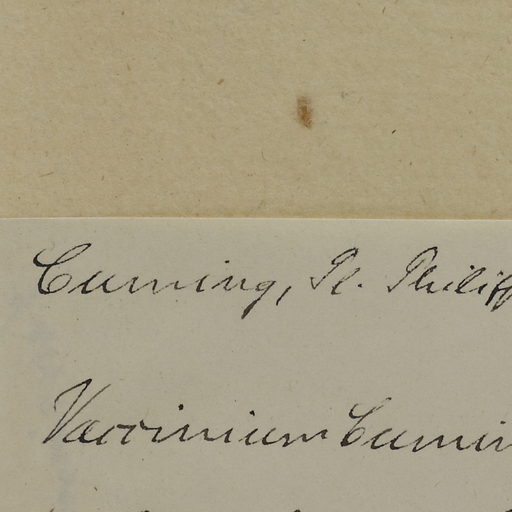 Cuming, Pl. Philipp
Vaccinium Cumin